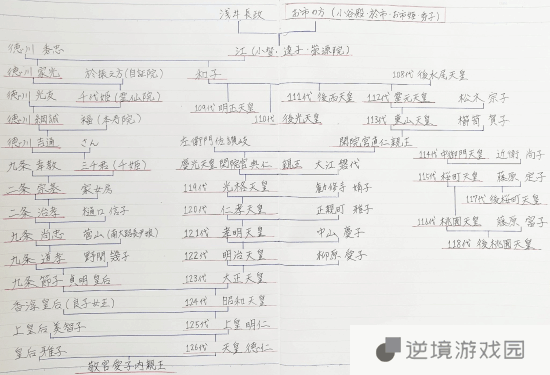 浅井長政 お市の方(小谷殿・於市・お市姫・秀子)
徳川 秀忠 江(小督・達子・崇源院)
徳川 家光 於振之方(自証院) 和子 108代 後水尾天皇
徳川 光友 千代姫(霊仙院) 111代 後西天皇 112代 霊元天皇 松木 宗子
109代 明正天皇 110代 後光天皇
徳川 綱誠 梅(本寿院) 113代 東山天皇 櫛笥 賀子
徳川 吉通 さん 左衛門佐讃岐 閑院宮直仁親王
114代 中御門天皇 近衛 尚子
九条 幸教 三千君(千姫) 慶光天皇 閑院宮典仁 親王 大江 磐代
115代 桜町天皇 藤原 定子
二条 宗基 家女房 119代 光格天皇 勧修寺 婧子
117代 後桜町天皇
二条 治孝 樋口 信子 120代 仁孝天皇 正親町 雅子
116代 桃園天皇 藤原 富子
九条 尚忠 菅山(南大路長尹娘) 121代 孝明天皇 中山 慶子
118代 後桃園天皇
九条 道孝 野間 幾子 122代 明治天皇 柳原 愛子
九条 節子 貞明皇后 123代 大正天皇
香淳皇后(良子女王) 124代 昭和天皇
上皇后 美智子 125代 上皇 明仁
皇后 雅子 126代 天皇 徳仁
敬宮愛子内親王
逆境游戏园